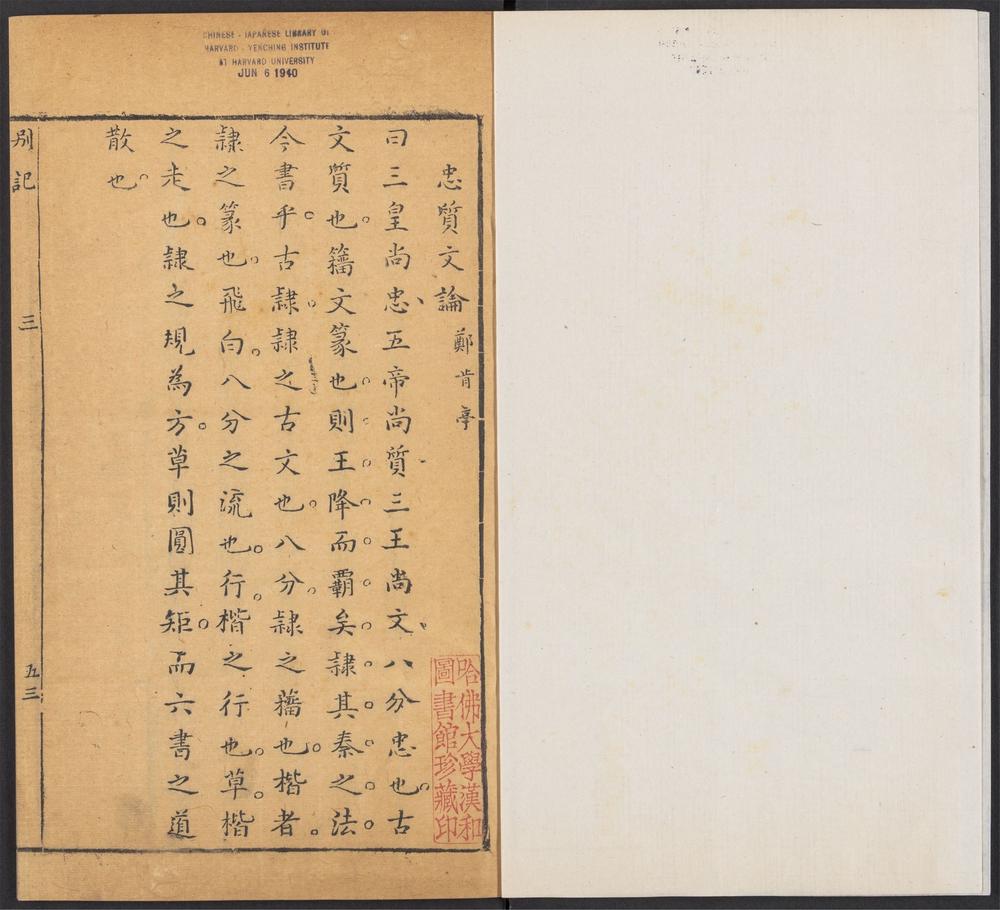 CHINESE - JAPANESE LIBRARY OF
HARVARD - YENCHING INSTITUTE
AT HARVARD UNIVERSITY
JUN 6 1940
忠質文論 鄭肯亭
曰三皇尚忠五帝尚質三王尚文八分忠也古
文質也。籀文篆也。則王降而霸矣隸其秦之法
今書乎。古隸隸之古文也。八分隸之籀也。楷者。
隸之篆也。飛白。八分之流也。行。楷之行也。草。楷
之走也。隸之規為方。草則圓其矩。而六書之道
散也。
別記
三
五三
哈佛大學漢和
圖書館珍藏印